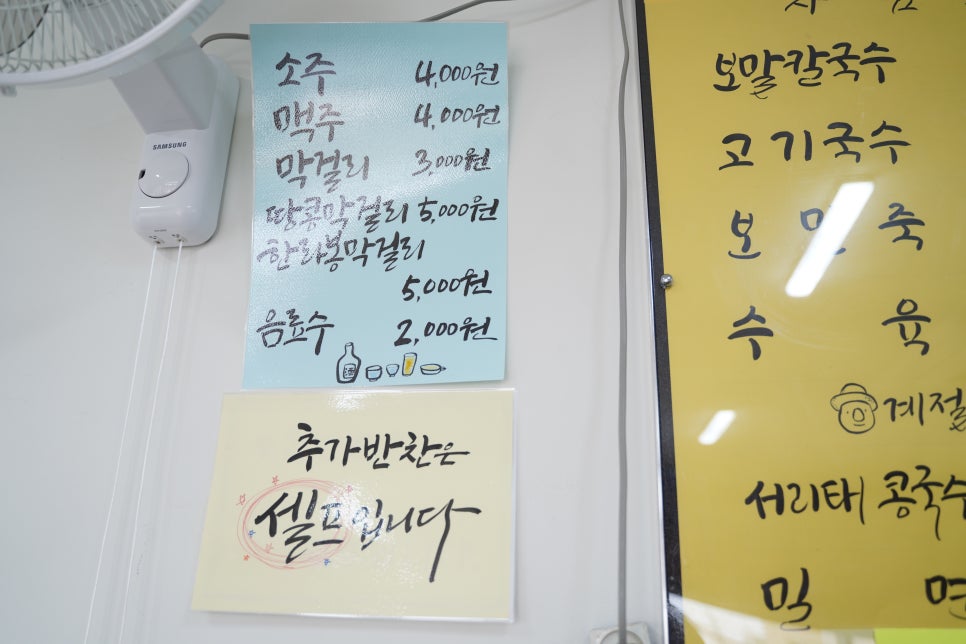 SAMSUNG
소주 4,000원
맥주 4,000원
막걸리 3,000원
땅콩막걸리 5,000원
한라봉막걸리
5,000원
음료수 2,000원
추가반찬은
셀프입니다
보말칼국수
고기국수
보말죽
수육
계절
서리태 콩국수
밀면